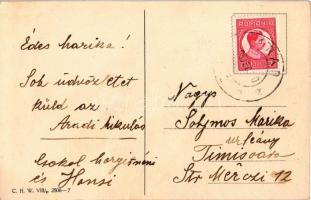 Édes Marika!
Sok üdvözletet
küld az
Aradi Mikulás
Csókol
és Hansi
C. H. W. VIII/2, 2508-7
ROMANIA
Nagys
Solymos Marika
urleány
Timisoara
Str Merczi 12